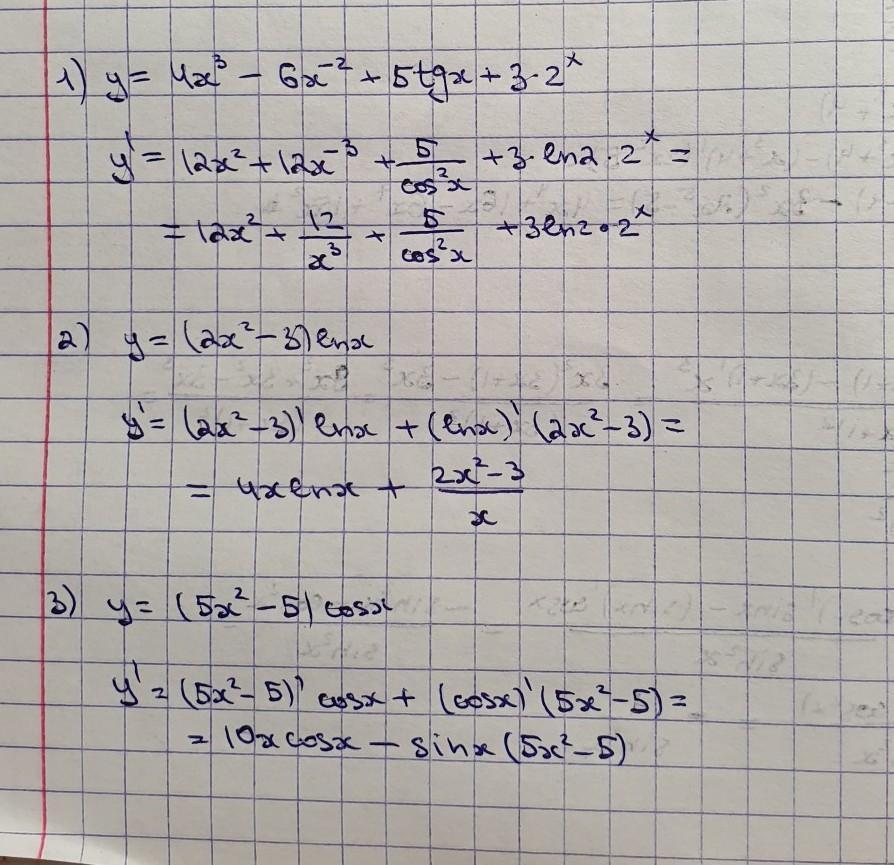 1) y = 4x³ - 6x⁻² + 5tgx + 3·2ˣ
y' = 12x² + 12x⁻³ + 5/cos²x + 3·ln2·2ˣ =
= 12x² + 12/x³ + 5/cos²x + 3ln2·2ˣ
2) y = (2x² - 3)lnx
y' = (2x² - 3)' lnx + (lnx)' (2x² - 3) =
= 4xlnx + (2x² - 3)/x
3) y = (5x² - 5) cosx
y' = (5x² - 5)' cosx + (cosx)' (5x² - 5) =
= 10xcosx - sinx(5x² - 5)